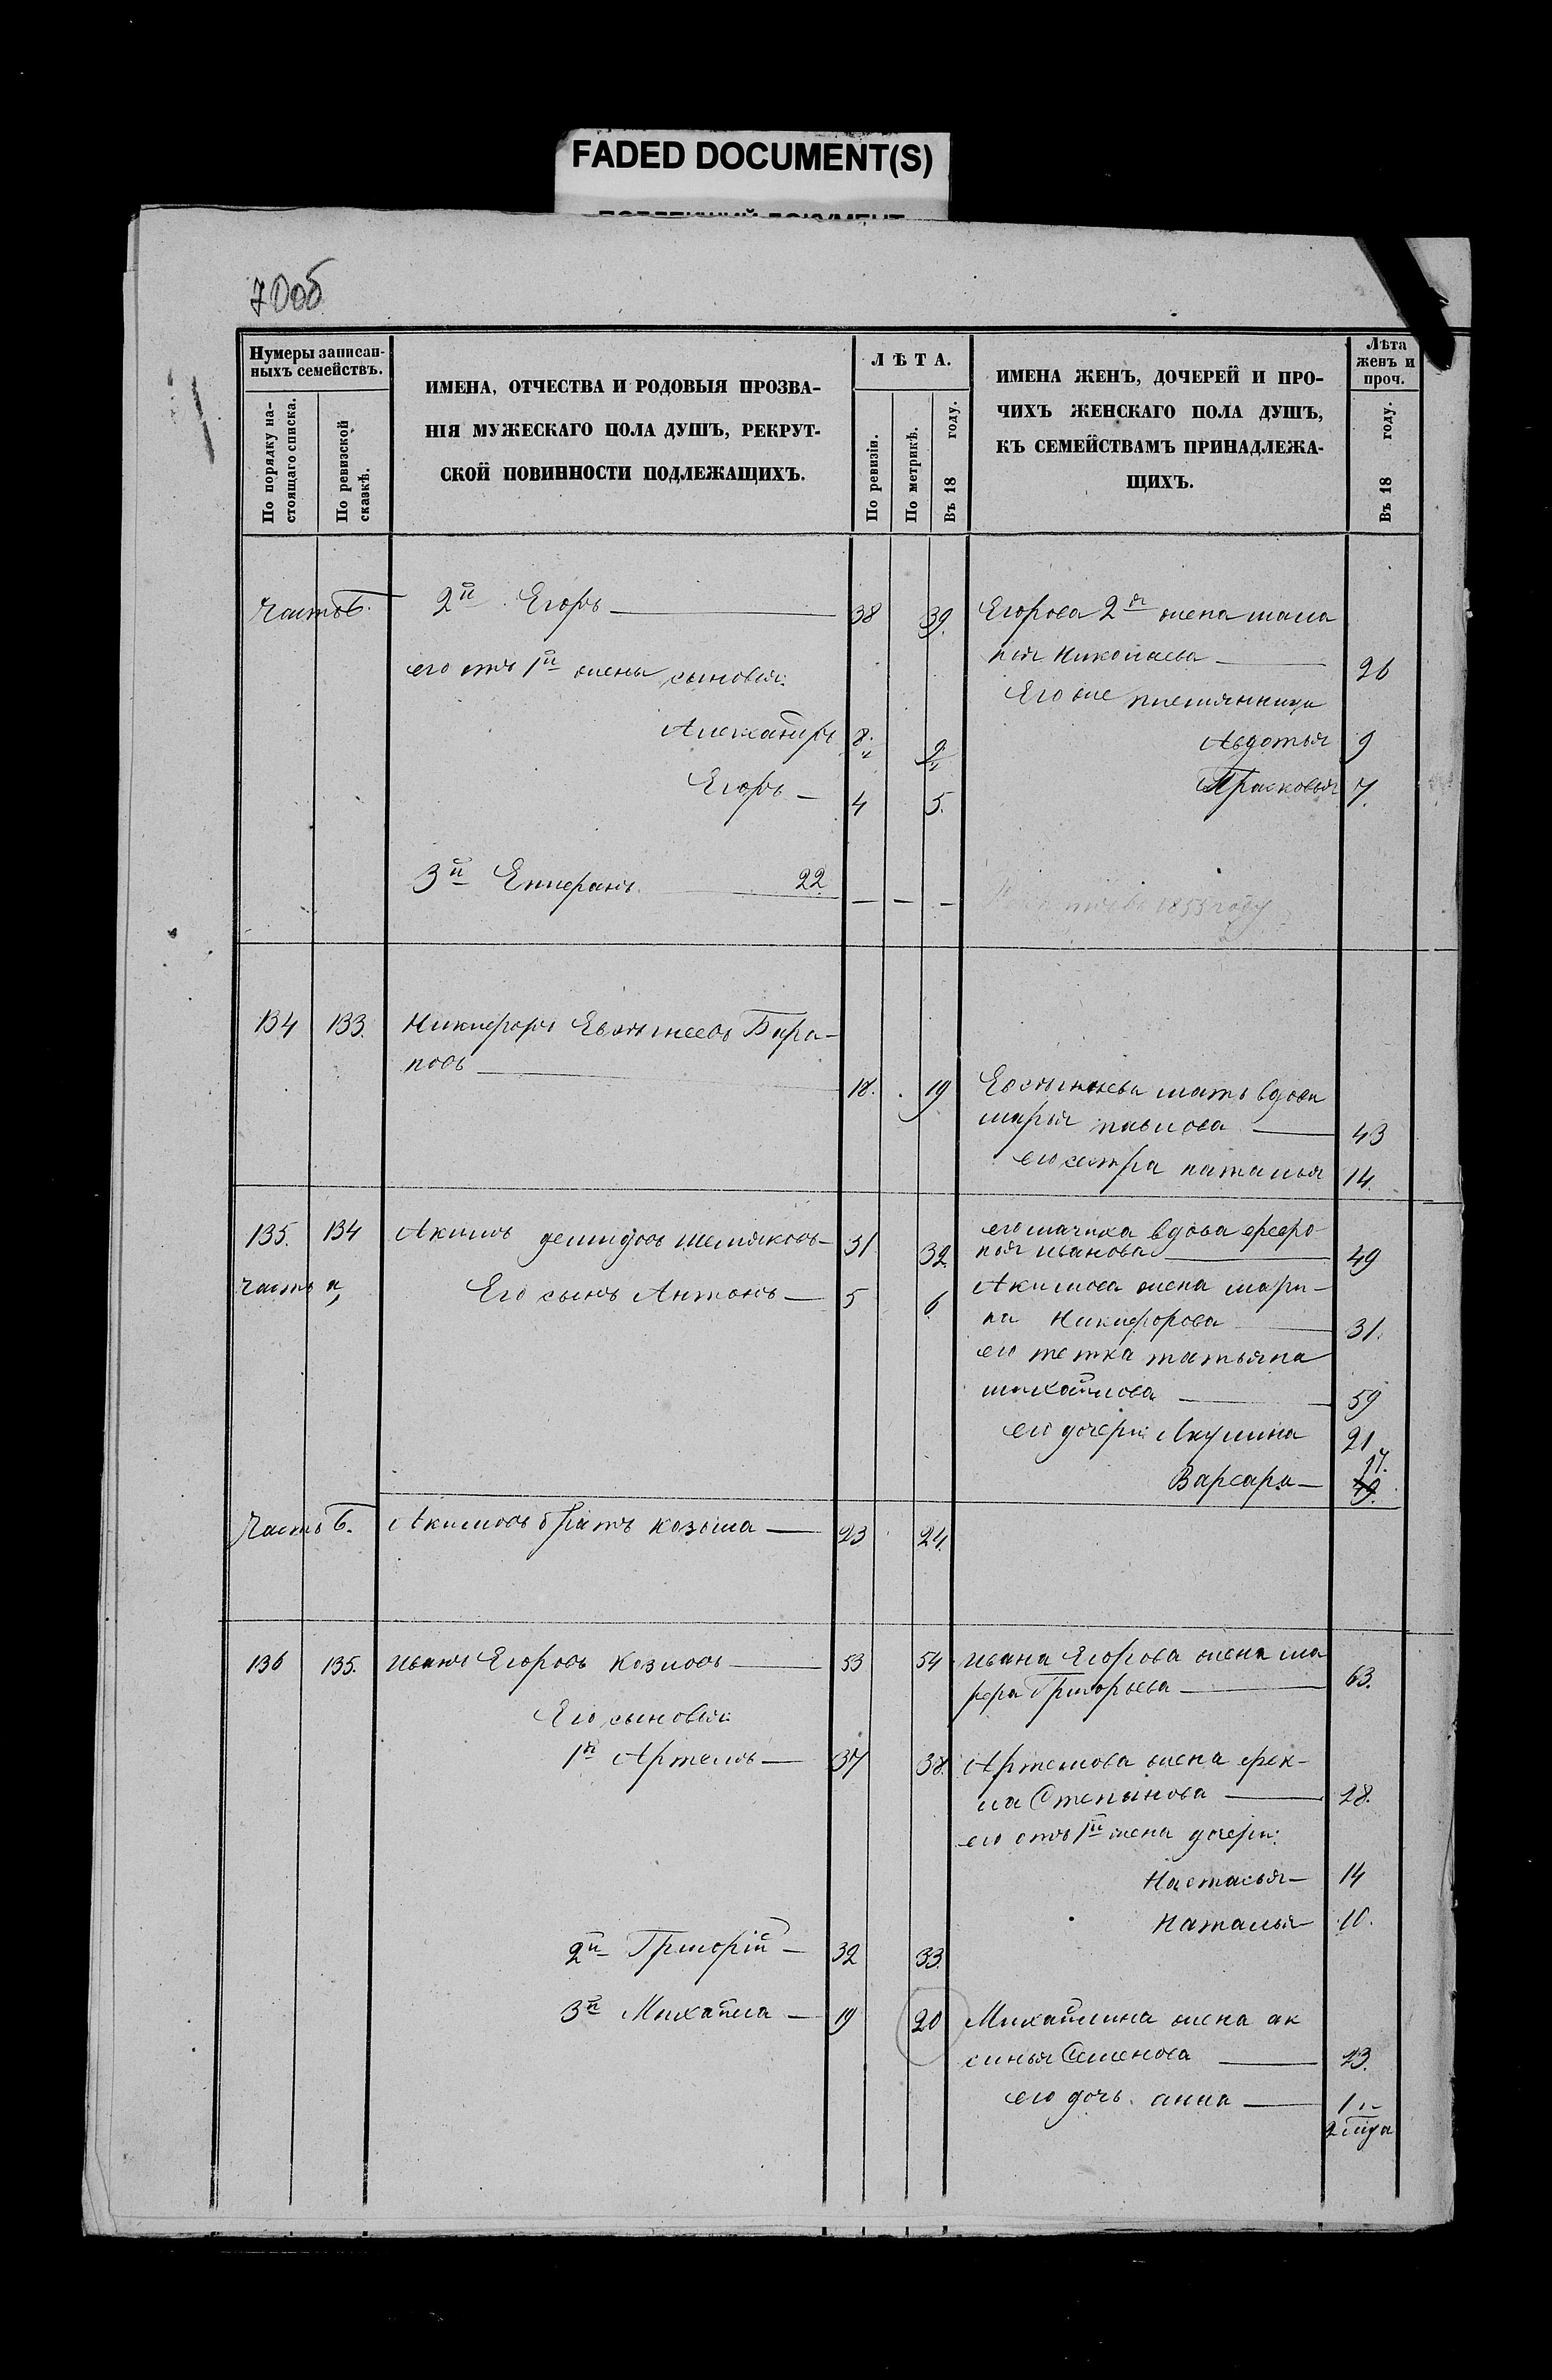 FADED DOCUMENT(S)
70об
Нумеры записан-
ныхъ семействъ.
По порядку на-
стоящаго списка.
По ревизской
сказкѣ.
ИМЕНА, ОТЧЕСТВА И РОДОВЫЯ ПРОЗВА-
НІЯ МУЖЕСКАГО ПОЛА ДУШЪ, РЕКРУТ-
СКОЙ ПОВИННОСТИ ПОДЛЕЖАЩИХЪ.
ЛѢТА.
По ревизіи.
По метрикѣ.
Въ 18 году.
ИМЕНА ЖЕНЪ, ДОЧЕРЕЙ И ПРО-
ЧИХЪ ЖЕНСКАГО ПОЛА ДУШЪ,
КЪ СЕМЕЙСТВАМЪ ПРИНАДЛЕЖА-
ЩИХЪ.
Лѣта
женъ и
проч.
Въ 18 году.
Часть б. 2й Егоръ 38 39. Егорова 2я жена мала
нья Николаева 26
его отъ 1й жены сыновья:
Его же племянницы
Александръ 8. 9 Авдотья 9
Егоръ 4 5. Прасковья 7.
3й 22
1855 году
134 133. Никифоръ Евстигнеевъ Бара-
новъ 18. 19 Евстигнеева мать вдова
марья павлова 43
его сестра наталья 14.
135. 134 Акимъ демидовъ шемяковъ 31 32. его мачиха вдова федо-
нья иванова 49
часть а, Его сынъ Антонъ 5 6 Акимова жена мари-
на Никифорова 31.
его тетка татьяна
михайлова 59
его дочери: Акулина 21
Варвара 17.
19.
Часть б. Акимовъ братъ козьма 23 24.
136 135. Иванъ Егоровъ Козловъ 53 54 Ивана Егорова жена ма
рфа Григорьева 63.
Его сыновья:
1й Артемъ 37 38. Артемова жена фек-
ла Степанова 28.
его отъ 1й жены дочери:
Настасья 14
Наталья 10.
2й Григорій 32 33.
3й Михайла 19 20 Михайлина жена ак
синья Семенова 23.
его дочь анна 1